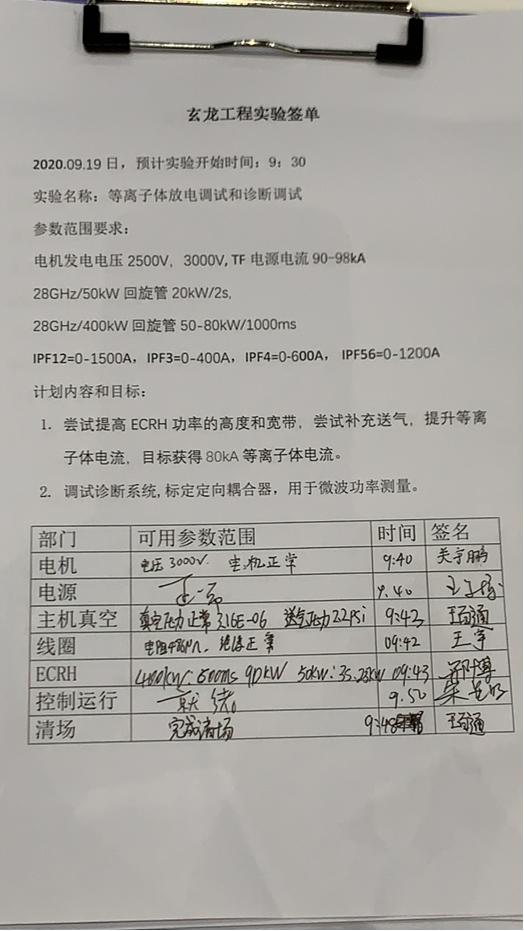 玄龙工程实验签单
2020.09.19日，预计实验开始时间：9：30
实验名称：等离子体放电调试和诊断调试
参数范围要求：
电机发电电压2500V，3000V, TF 电源电流 90-98kA
28GHz/50kW 回旋管 20kW/2s,
28GHz/400kW 回旋管 50-80kW/1000ms
IPF12=0-1500A，IPF3=0-400A，IPF4=0-600A， IPF56=0-1200A
计划内容和目标：
1. 尝试提高 ECRH 功率的高度和宽带，尝试补充送气，提升等离
子体电流，目标获得 80kA 等离子体电流。
2. 调试诊断系统,标定定向耦合器，用于微波功率测量。
部门 可用参数范围 时间 签名
电机 电压3000V. 电机正常 9:40
电源 正常 9.40
主机真空 真空压力正常 3.16E-06 送气压力22Psi 9:43
线圈 绝缘正常 09:42 王宇
ECRH 400kW: 600ms 90kW 50kW: 3s. 09:43
控制运行 就绪。 9.50
清场 完成清场 9:48